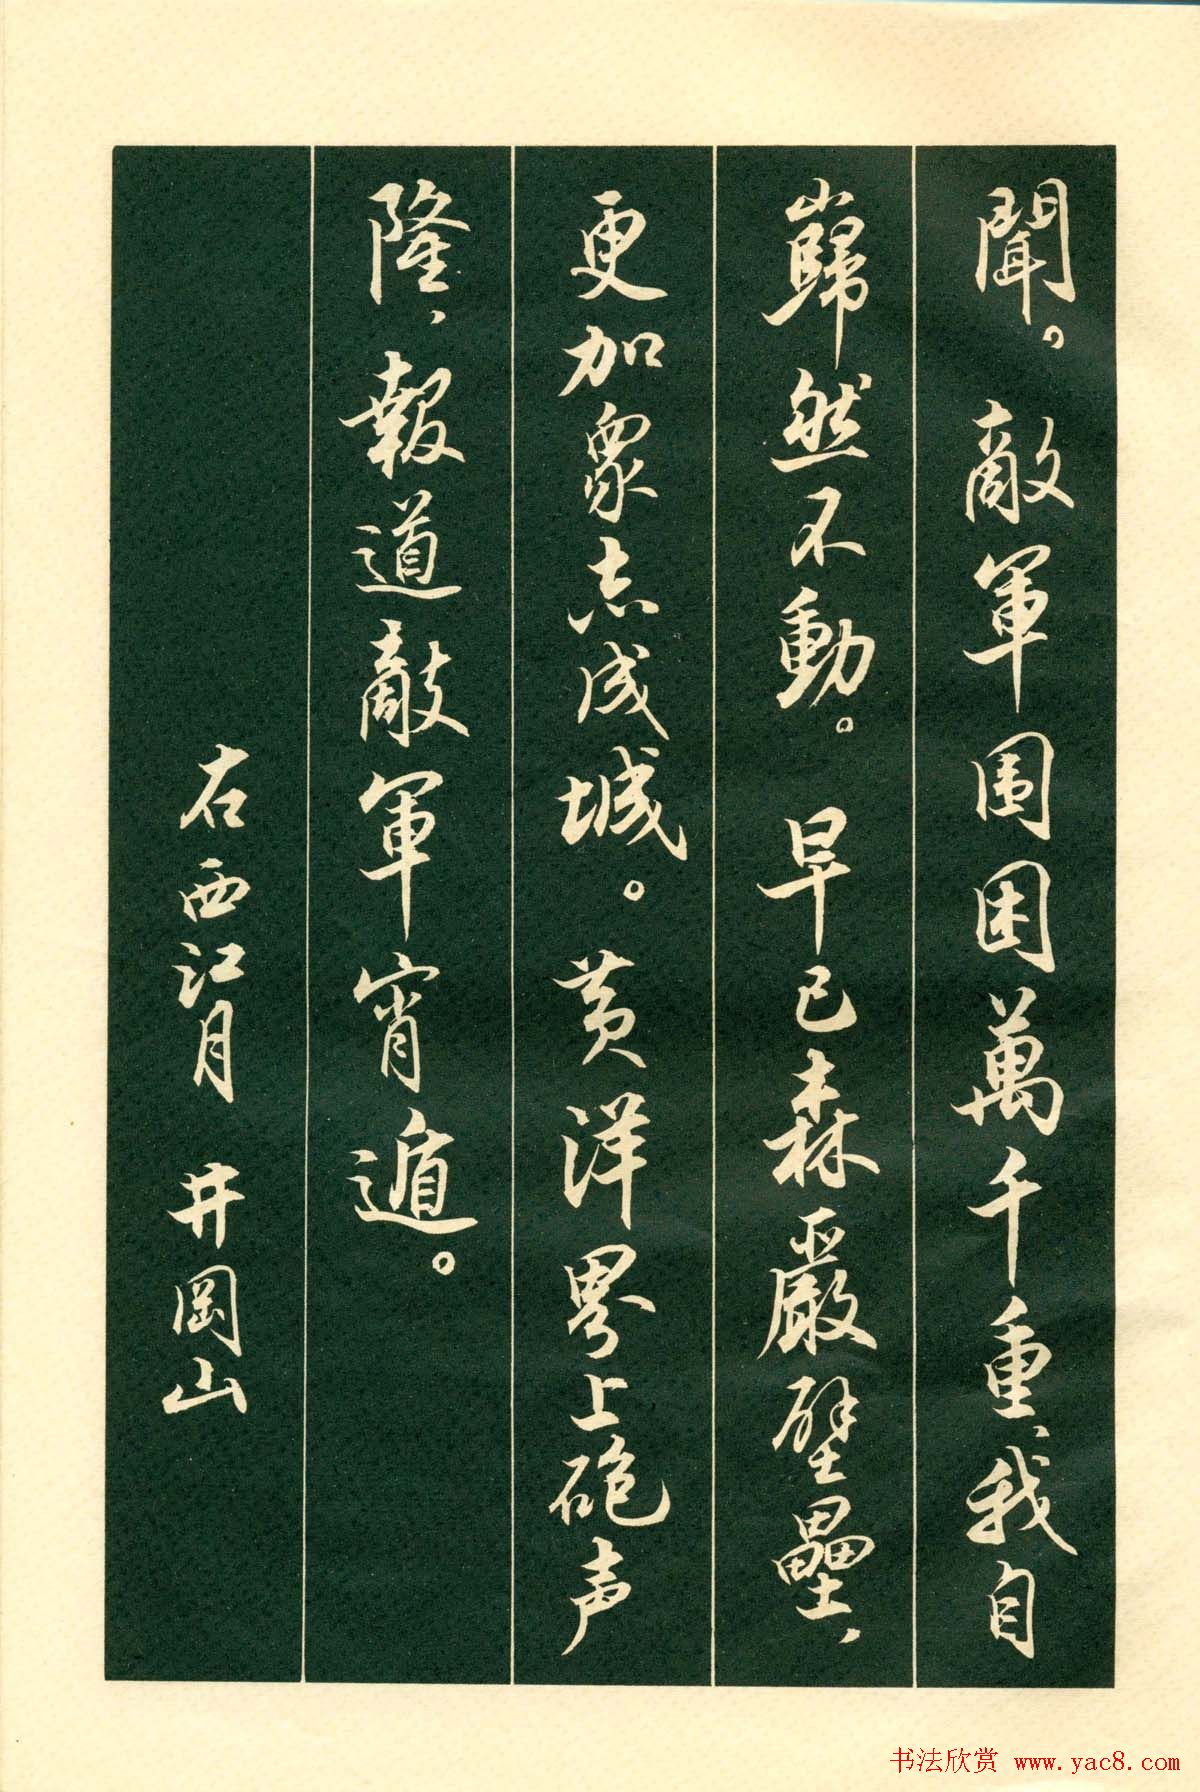 聞。敵軍围困萬千重、我自
巋然不動。早已森嚴壁壘、
更加眾志成城。黄洋界上砲声
隆、報道敵軍宵遁。
右西江月 井岡山
书法欣赏 www.yac8.com